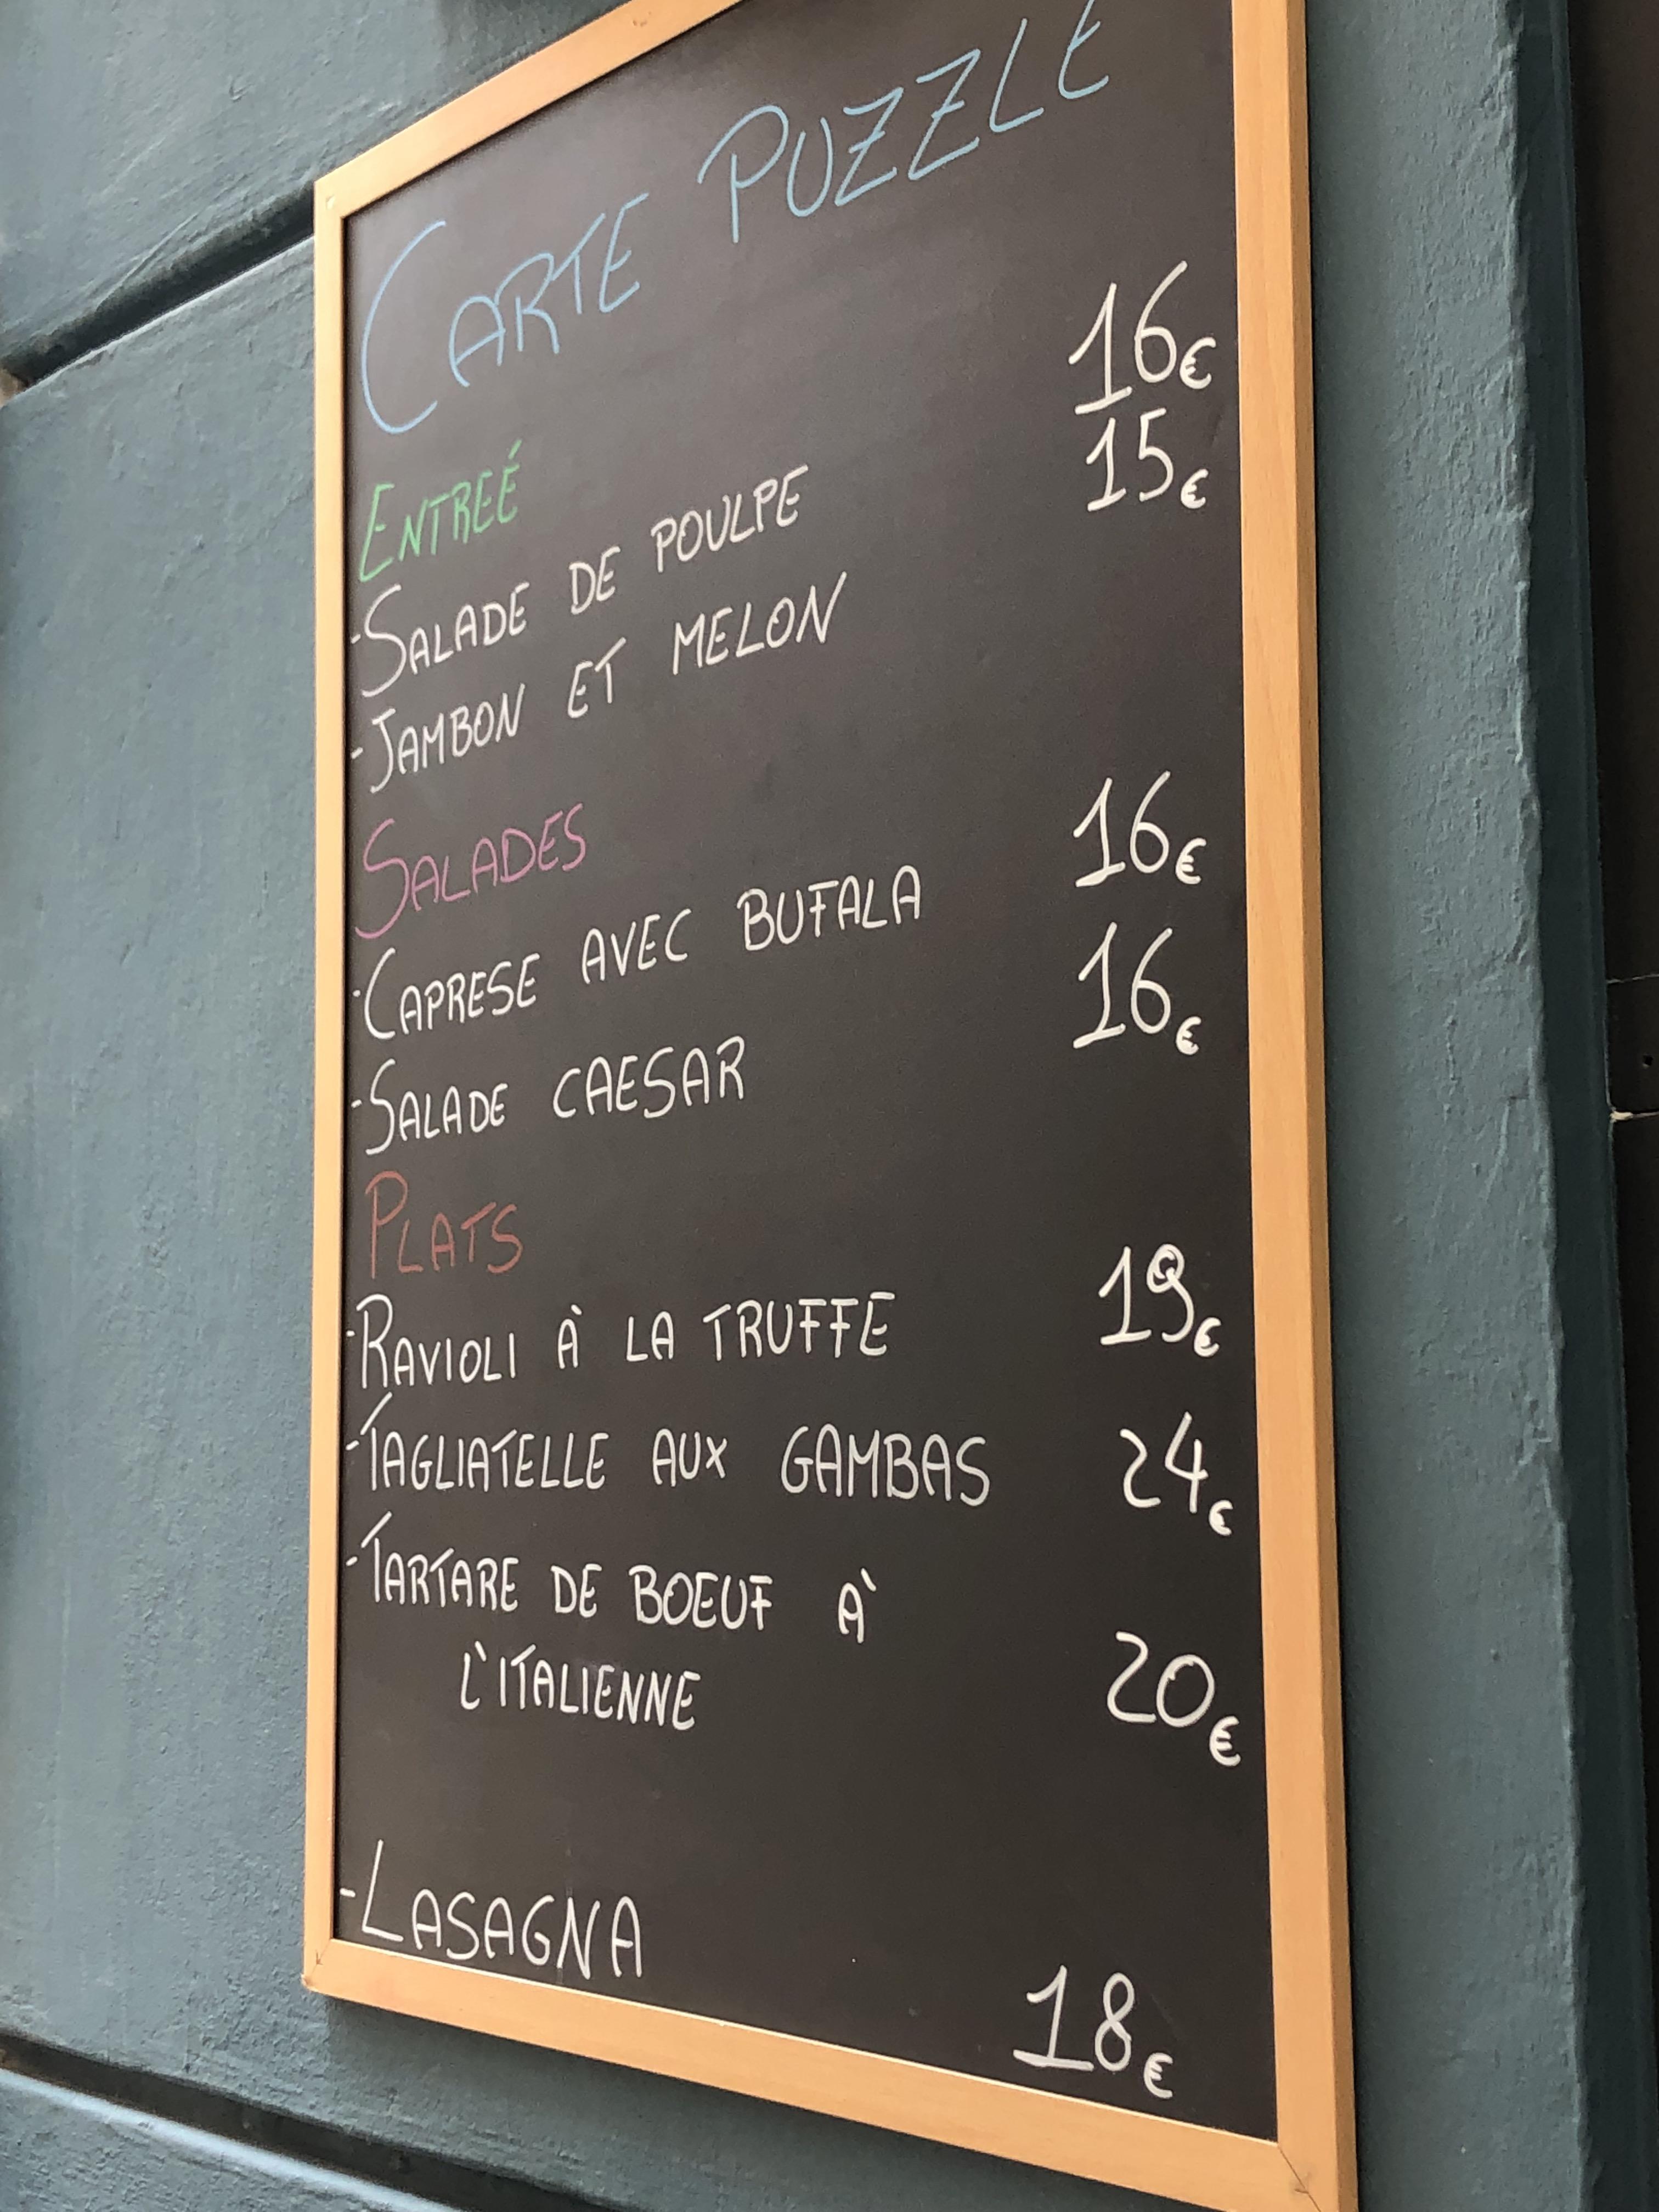 CARTE PUZZLE
ENTREÉ
-SALADE DE POULPE 16€
-JAMBON ET MELON 15€
SALADES
-CAPRESE AVEC BUFALA 16€
-SALADE CAESAR 16€
PLATS
-RAVIOLI À LA TRUFFE 19€
-TAGLIATELLE AUX GAMBAS 24€
-TARTARE DE BOEUF À
L'ITALIENNE 20€
-LASAGNA 18€